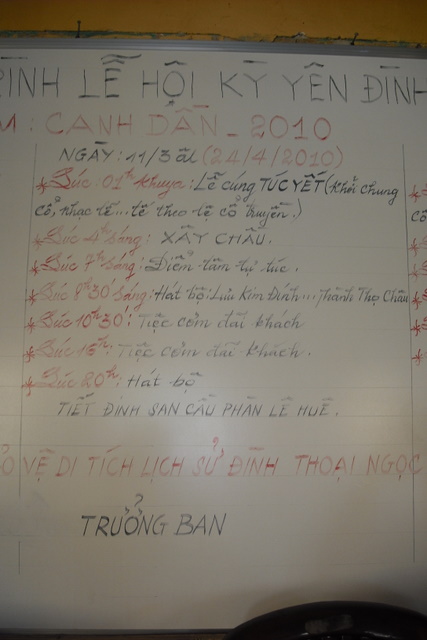 RÌNH LỄ HỘI KỲ YÊN ĐÌNH
M : CANH DẦN - 2010
NGÀY : 11/3 âl (24/4/2010)
Lúc : 01h khuya : Lễ cúng TÚC YẾT (khởi chung
cổ, nhạc tế... tế theo lệ cổ truyền.)
Lúc 4h sáng : XÂY CHẦU.
Lúc 7h sáng : Điểm tâm tự túc.
Lúc 8h30 sáng : Hát bộ : Lưu Kim Đính... Thành Thọ Châu
Lúc 10h30 : Tiệc cơm đãi khách
Lúc 16h : Tiệc cơm đãi khách.
Lúc 20h : Hát bộ
TIẾT ĐINH SAN CẦU PHÀN LÊ HUÊ.
ẢO VỆ DI TÍCH LỊCH SỬ ĐÌNH THOẠI NGỌC
TRƯỞNG BAN